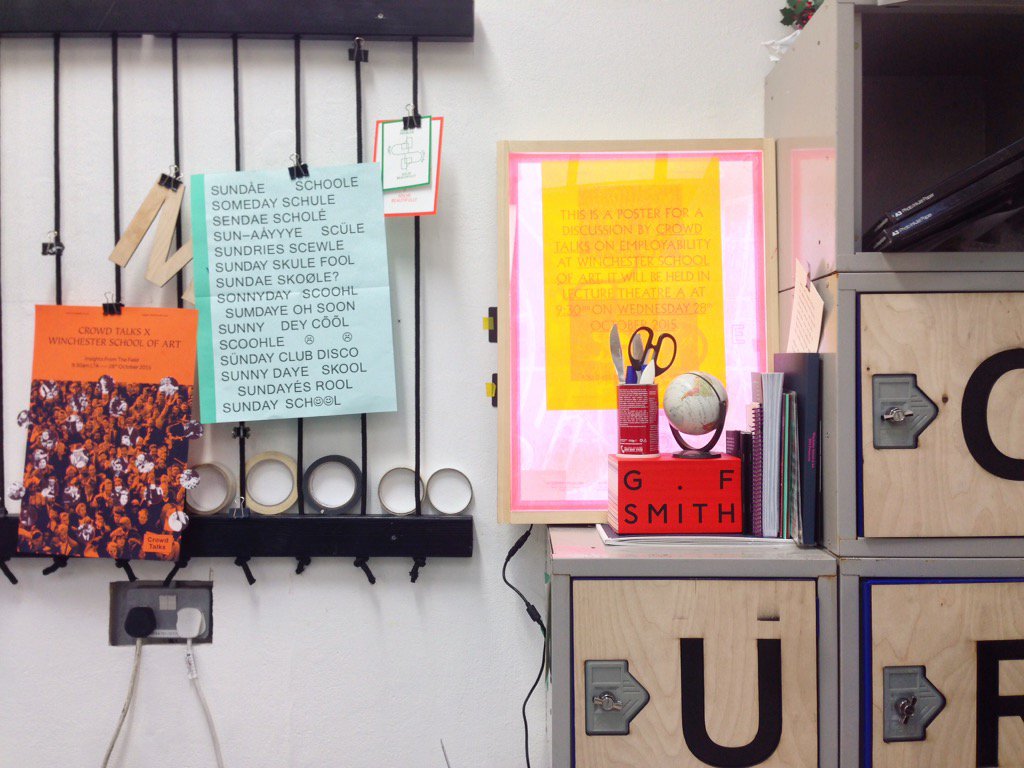 CROWD TALKS X
WINCHESTER SCHOOL OF ART
Insights From The Field
28th October 2015
Crowd
Talks
SUNDÀE SCHOOLE
SOMEDAY SCHULE
SENDAE SCHOLÈ
SUN–AÀYYYE SCÜLE
SUNDRIES SCEWLE
SUNDAY SKULE FOOL
SUNDAE SKOØLE?
SONNYDAY SCOOHL
SUMDAYE OH SOON
SUNNY DEY CÕÕL
SCOOHLE ☹ ☹
SÜNDAY CLUB DISCO
SUNNY DAYE SKOOL
SUNDAYÉS ROOL
SUNDAY SCH☺☺L
BEAUTIFULLY
THIS IS A POSTER FOR A
DISCUSSION BY CROWD
TALKS ON EMPLOYABILITY
AT WINCHESTER SCHOOL
OF ART. IT WILL BE HELD IN
LECTURE THEATRE A AT
9:30AM ON WEDNESDAY 28TH
OCTOBER 2015
G . F
SMITH
O
U
R